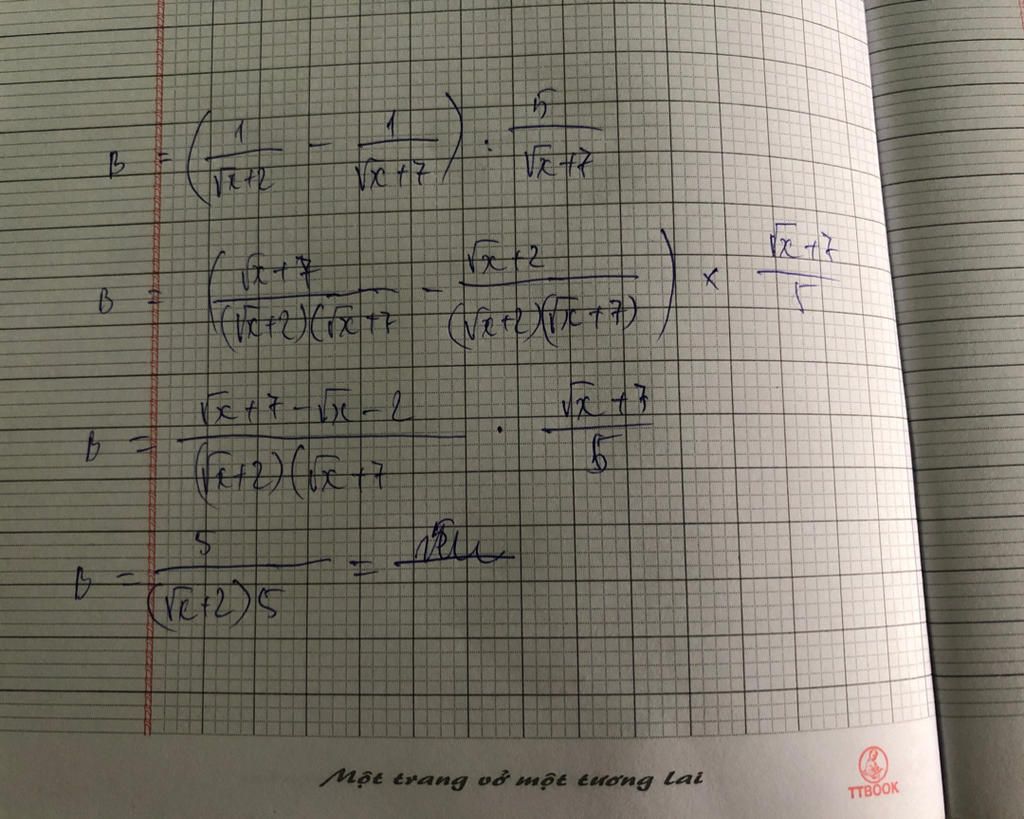 B = (1/(√x+2) - 1/(√x+7)) : 5/(√x+7)
B = ((√x+7)/((√x+2)(√x+7) - (√x+2)/((√x+2)(√x+7))) × (√x+7)/5
B = (√x+7-√x-2)/((√x+2)(√x+7) . (√x+7)/5
B = 5/((√x+2)5) =
Một trang vở một tương lai
TTBOOK